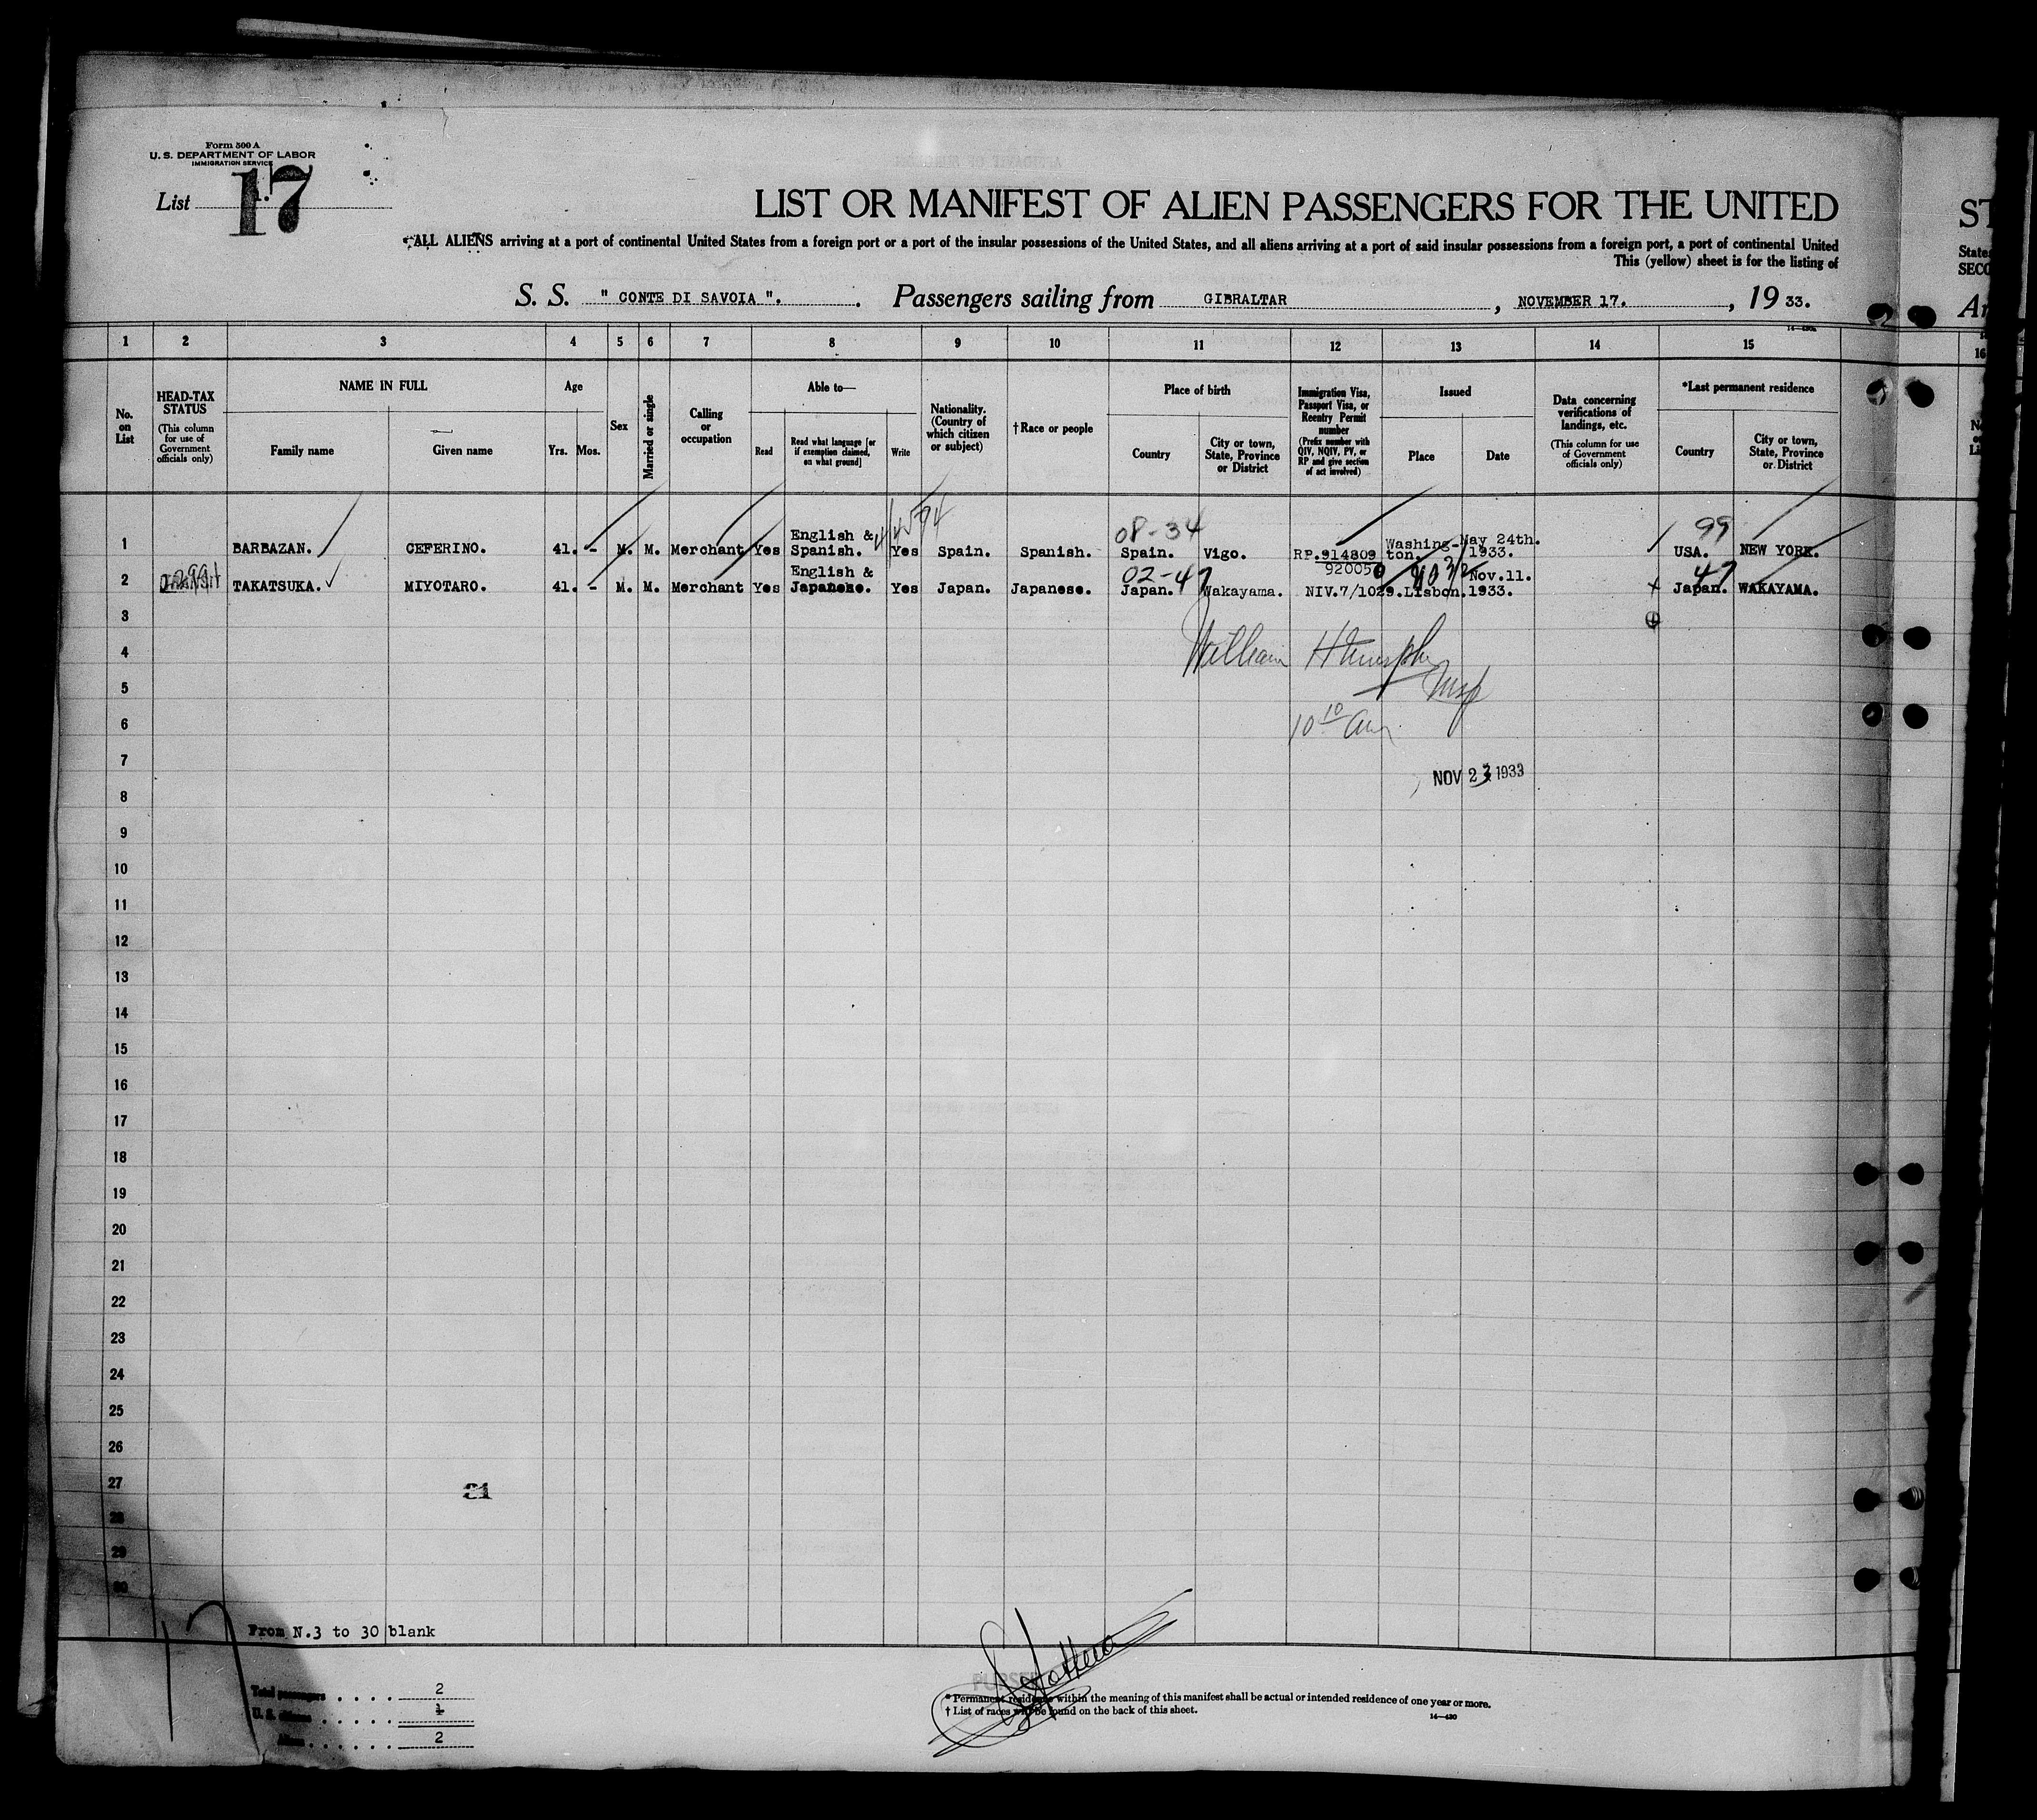 Form 500 A
U. S. DEPARTMENT OF LABOR
IMMIGRATION SERVICE
List 1.
17
LIST OR MANIFEST OF ALIEN PASSENGERS FOR THE UNITED
ST
ALL ALIENS arriving at a port of continental United States from a foreign port or a port of the insular possessions of the United States, and all aliens arriving at a port of said insular possessions from a foreign port, a port of continental United
States
This (yellow) sheet is for the listing of
SECO
S. S. " CONTE DI SAVOIA ". Passengers sailing from GIBRALTAR, NOVEMBER 17., 19 33.
1 2 3 4 5 6 7 8 9 10 11 12 13 14 15 16
No. on List
HEAD-TAX STATUS
(This column for use of Government officials only)
NAME IN FULL
Family name
Given name
Age
Yrs. Mos.
Sex
Married or single
Calling or occupation
Able to—
Read
Read what language [or if exemption claimed, on what ground]
Write
Nationality. (Country of which citizen or subject)
†Race or people
Place of birth
Country
City or town, State, Province or District
Immigration Visa, Passport Visa, or Reentry Permit number
(Prefix number with QIV, NQIV, PV, or RP and give section of act involved)
Issued
Place
Date
Data concerning verifications of landings, etc.
(This column for use of Government officials only)
*Last permanent residence
Country
City or town, State, Province or District
08-34 99
1 BARBAZAN. CEFERINO. 41. - M. M. Merchant Yes English & Spanish. Yes Spain. Spanish. Spain. Vigo. RP.914809 Washing-ton. May 24th. 1933. USA. NEW YORK.
920050
02-47 47
2 Transit TAKATSUKA. MIYOTARO. 41. - M. M. Merchant Yes English & Japanese. Yes Japan. Japanese. Japan. Wakayama. NIV.7/1029. Lisbon. Nov.11. 1933. Japan. WAKAYAMA.
3
4 William
5 Insp
6 10 10 am
7 NOV 23 1933
8
9
10
11
12
13
14
15
16
17
18
19
20
21
22
23
24
25
26
27
31
28
29
30
17
From N.3 to 30 blank
PURSER
Total passengers . . . . 2
U. S. citizens . . . . . 1
Aliens . . . . . . 2
* Permanent residence within the meaning of this manifest shall be actual or intended residence of one year or more.
† List of races will be found on the back of this sheet.
14—430